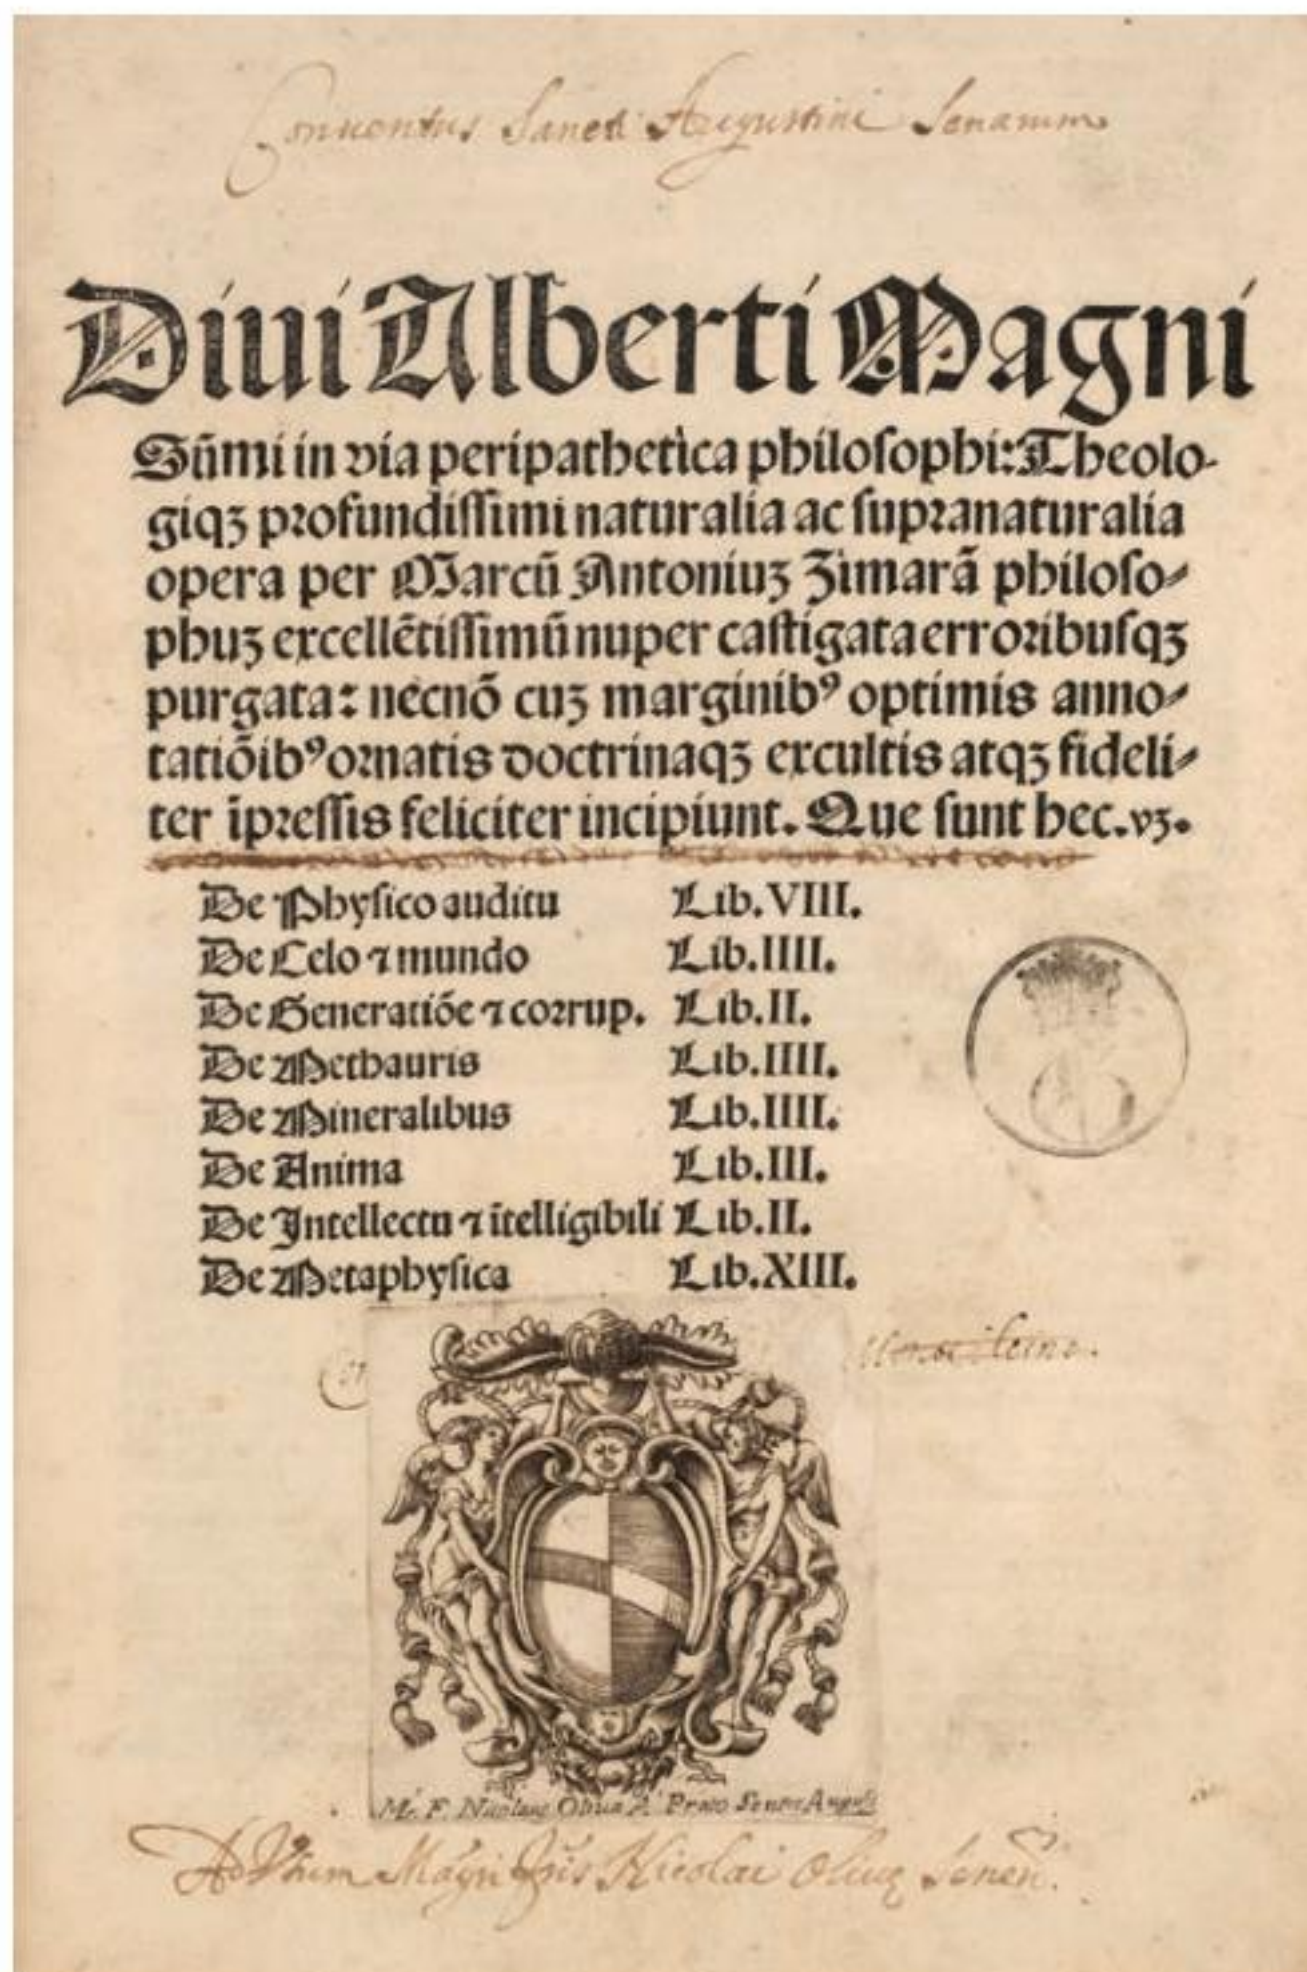 Conuentus Sancti Augustini Senarum
Diui Alberti Magni
Sūmi in via peripathetica philosophi: Theolo-
giqꝫ profundissimi naturalia ac supranaturalia
opera per Marcū Antoniuꝫ Zimarā philoso-
phuꝫ excellētissimū nuper castigata erroribusqꝫ
purgata: necnō cuꝫ marginibꝰ optimis anno-
tatiōibꝰ ornatis doctrinaqꝫ excultis atqꝫ fideli-
ter īpressis feliciter incipiunt. Que sunt hec. vꝫ.
De Physico auditu Lib. VIII.
De Celo ⁊ mundo Lib. IIII.
De Generatiōe ⁊ corrup. Lib. II.
De Methauris Lib. IIII.
De Mineralibus Lib. IIII.
De Anima Lib. III.
De Intellectu ⁊ ītelligibili Lib. II.
De Metaphysica Lib. XIII.
Mr. F. Nicolaus Oliua Senen. August
Ad Vsum Magri Fris Nicolai Oliuę Senen̄.